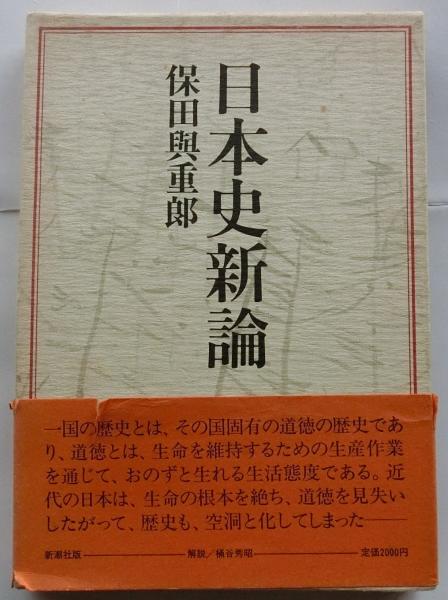 日本史新論
保田與重郎
一国の歴史とは、その国固有の道徳の歴史であ
り、道徳とは、生命を維持するための生産作業
を通じて、おのずと生れる生活態度である。近
代の日本は、生命の根本を絶ち、道徳を見失い
したがって、歴史も、空洞と化してしまった――
新潮社版――解説／桶谷秀昭――定価2000円